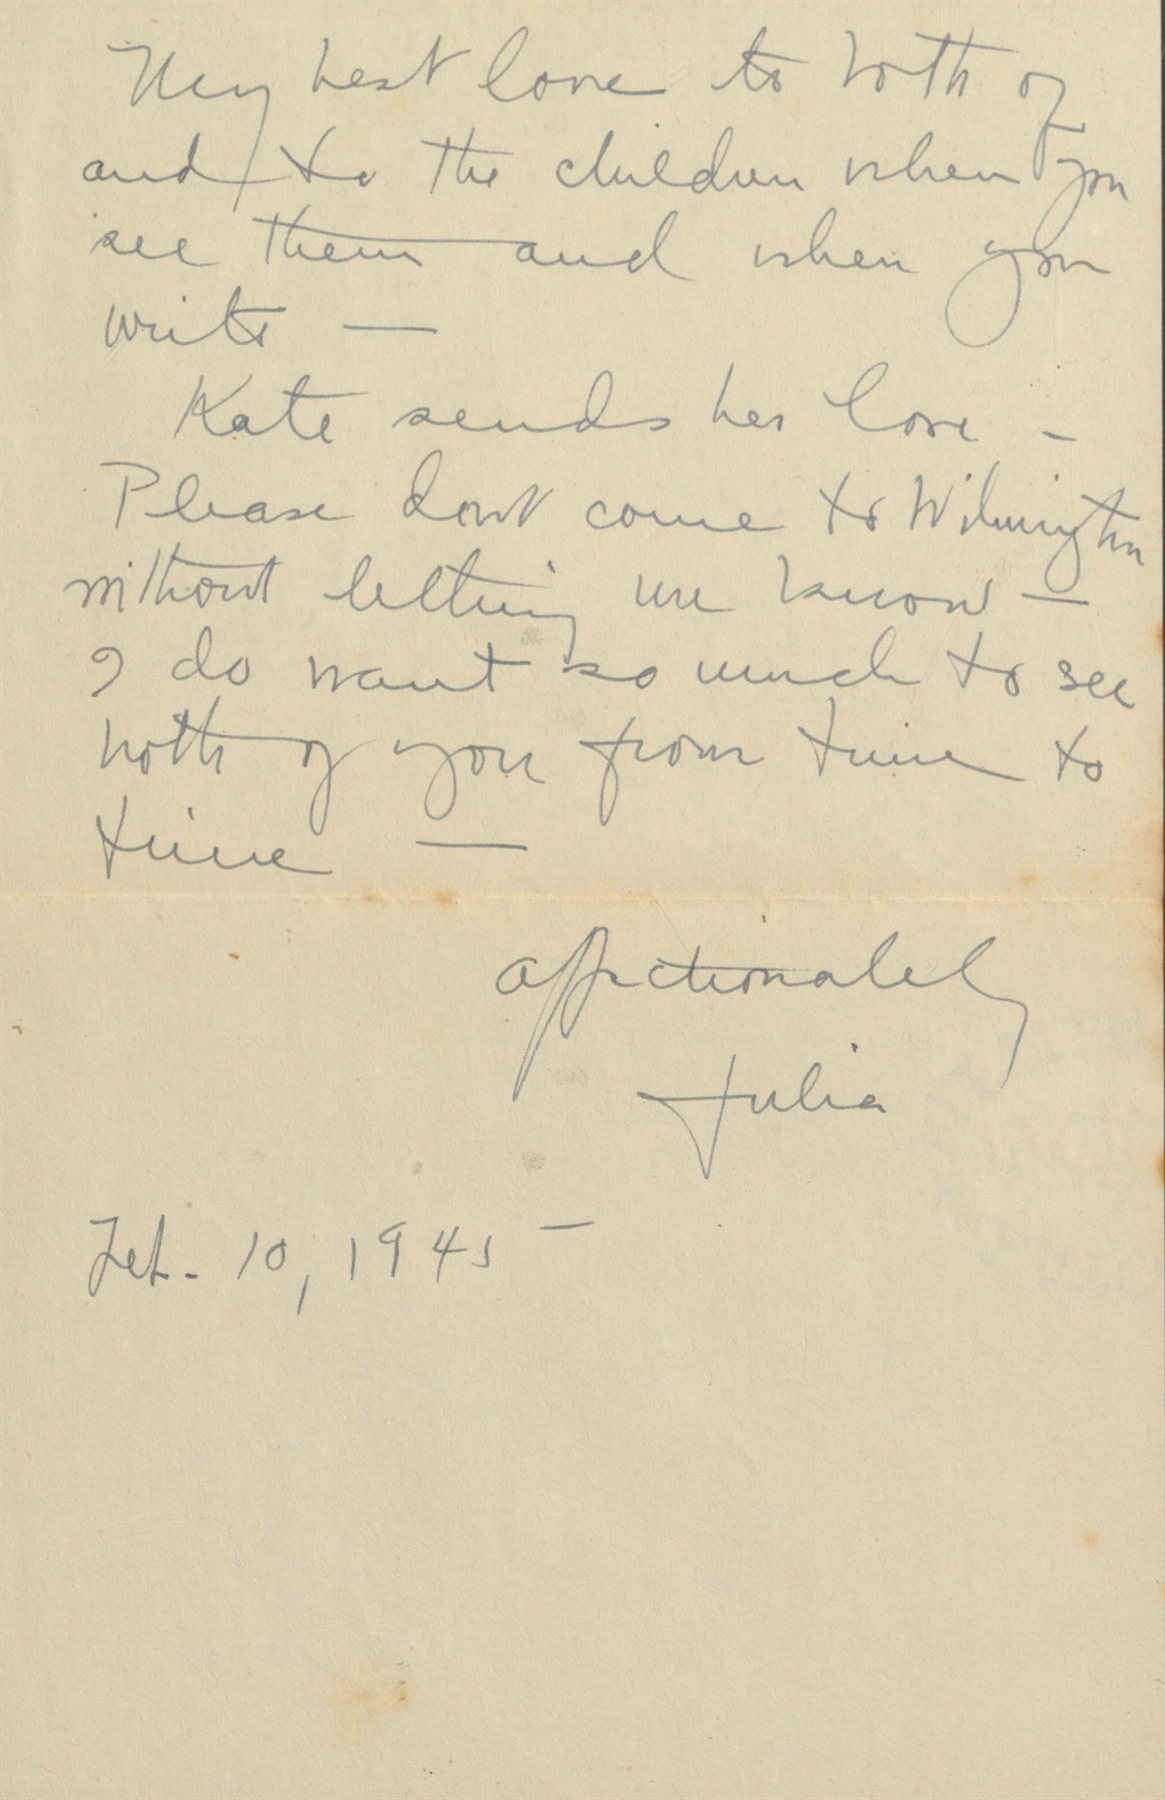 My best love to both of
and to the children when you
see them and when you
write —
Kate sends her love -
Please don't come to Wilmington
without letting me know —
I do want so much to see
both of you from time to
time —
Affectionately
Julia
Feb. 10, 1945 —